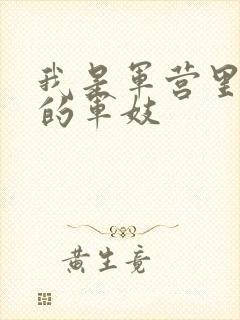 我是军营里
的军妓
黄生竟